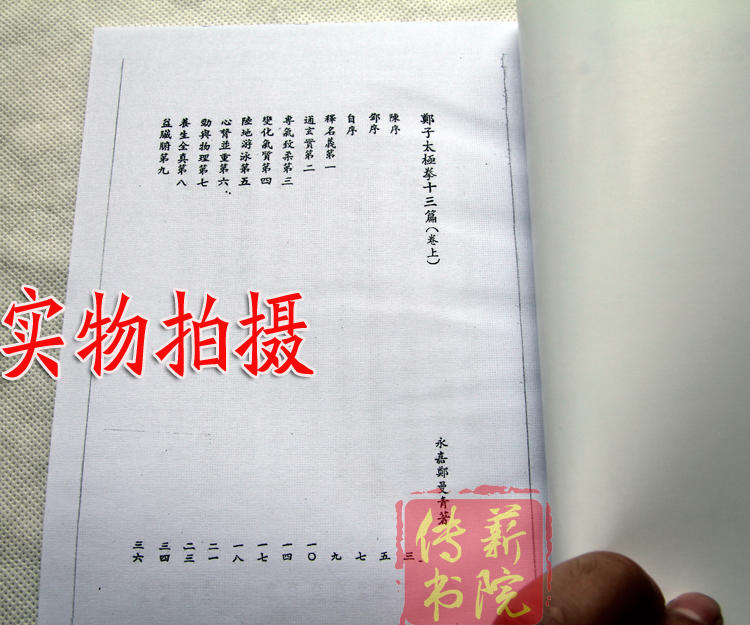 鄭子太極拳十三篇(卷上)
永嘉鄭曼青著
陳序 三
序 五
自序 七
釋名義第一 九
通玄實第二 一〇
專氣致柔第三 一四
變化氣質第四 一七
陸地游泳第五 一八
心腎並重第六 二一
勁與物理第七 二三
養生全真第八 三四
益臟腑第九 三六
实物拍摄
薪传
书院